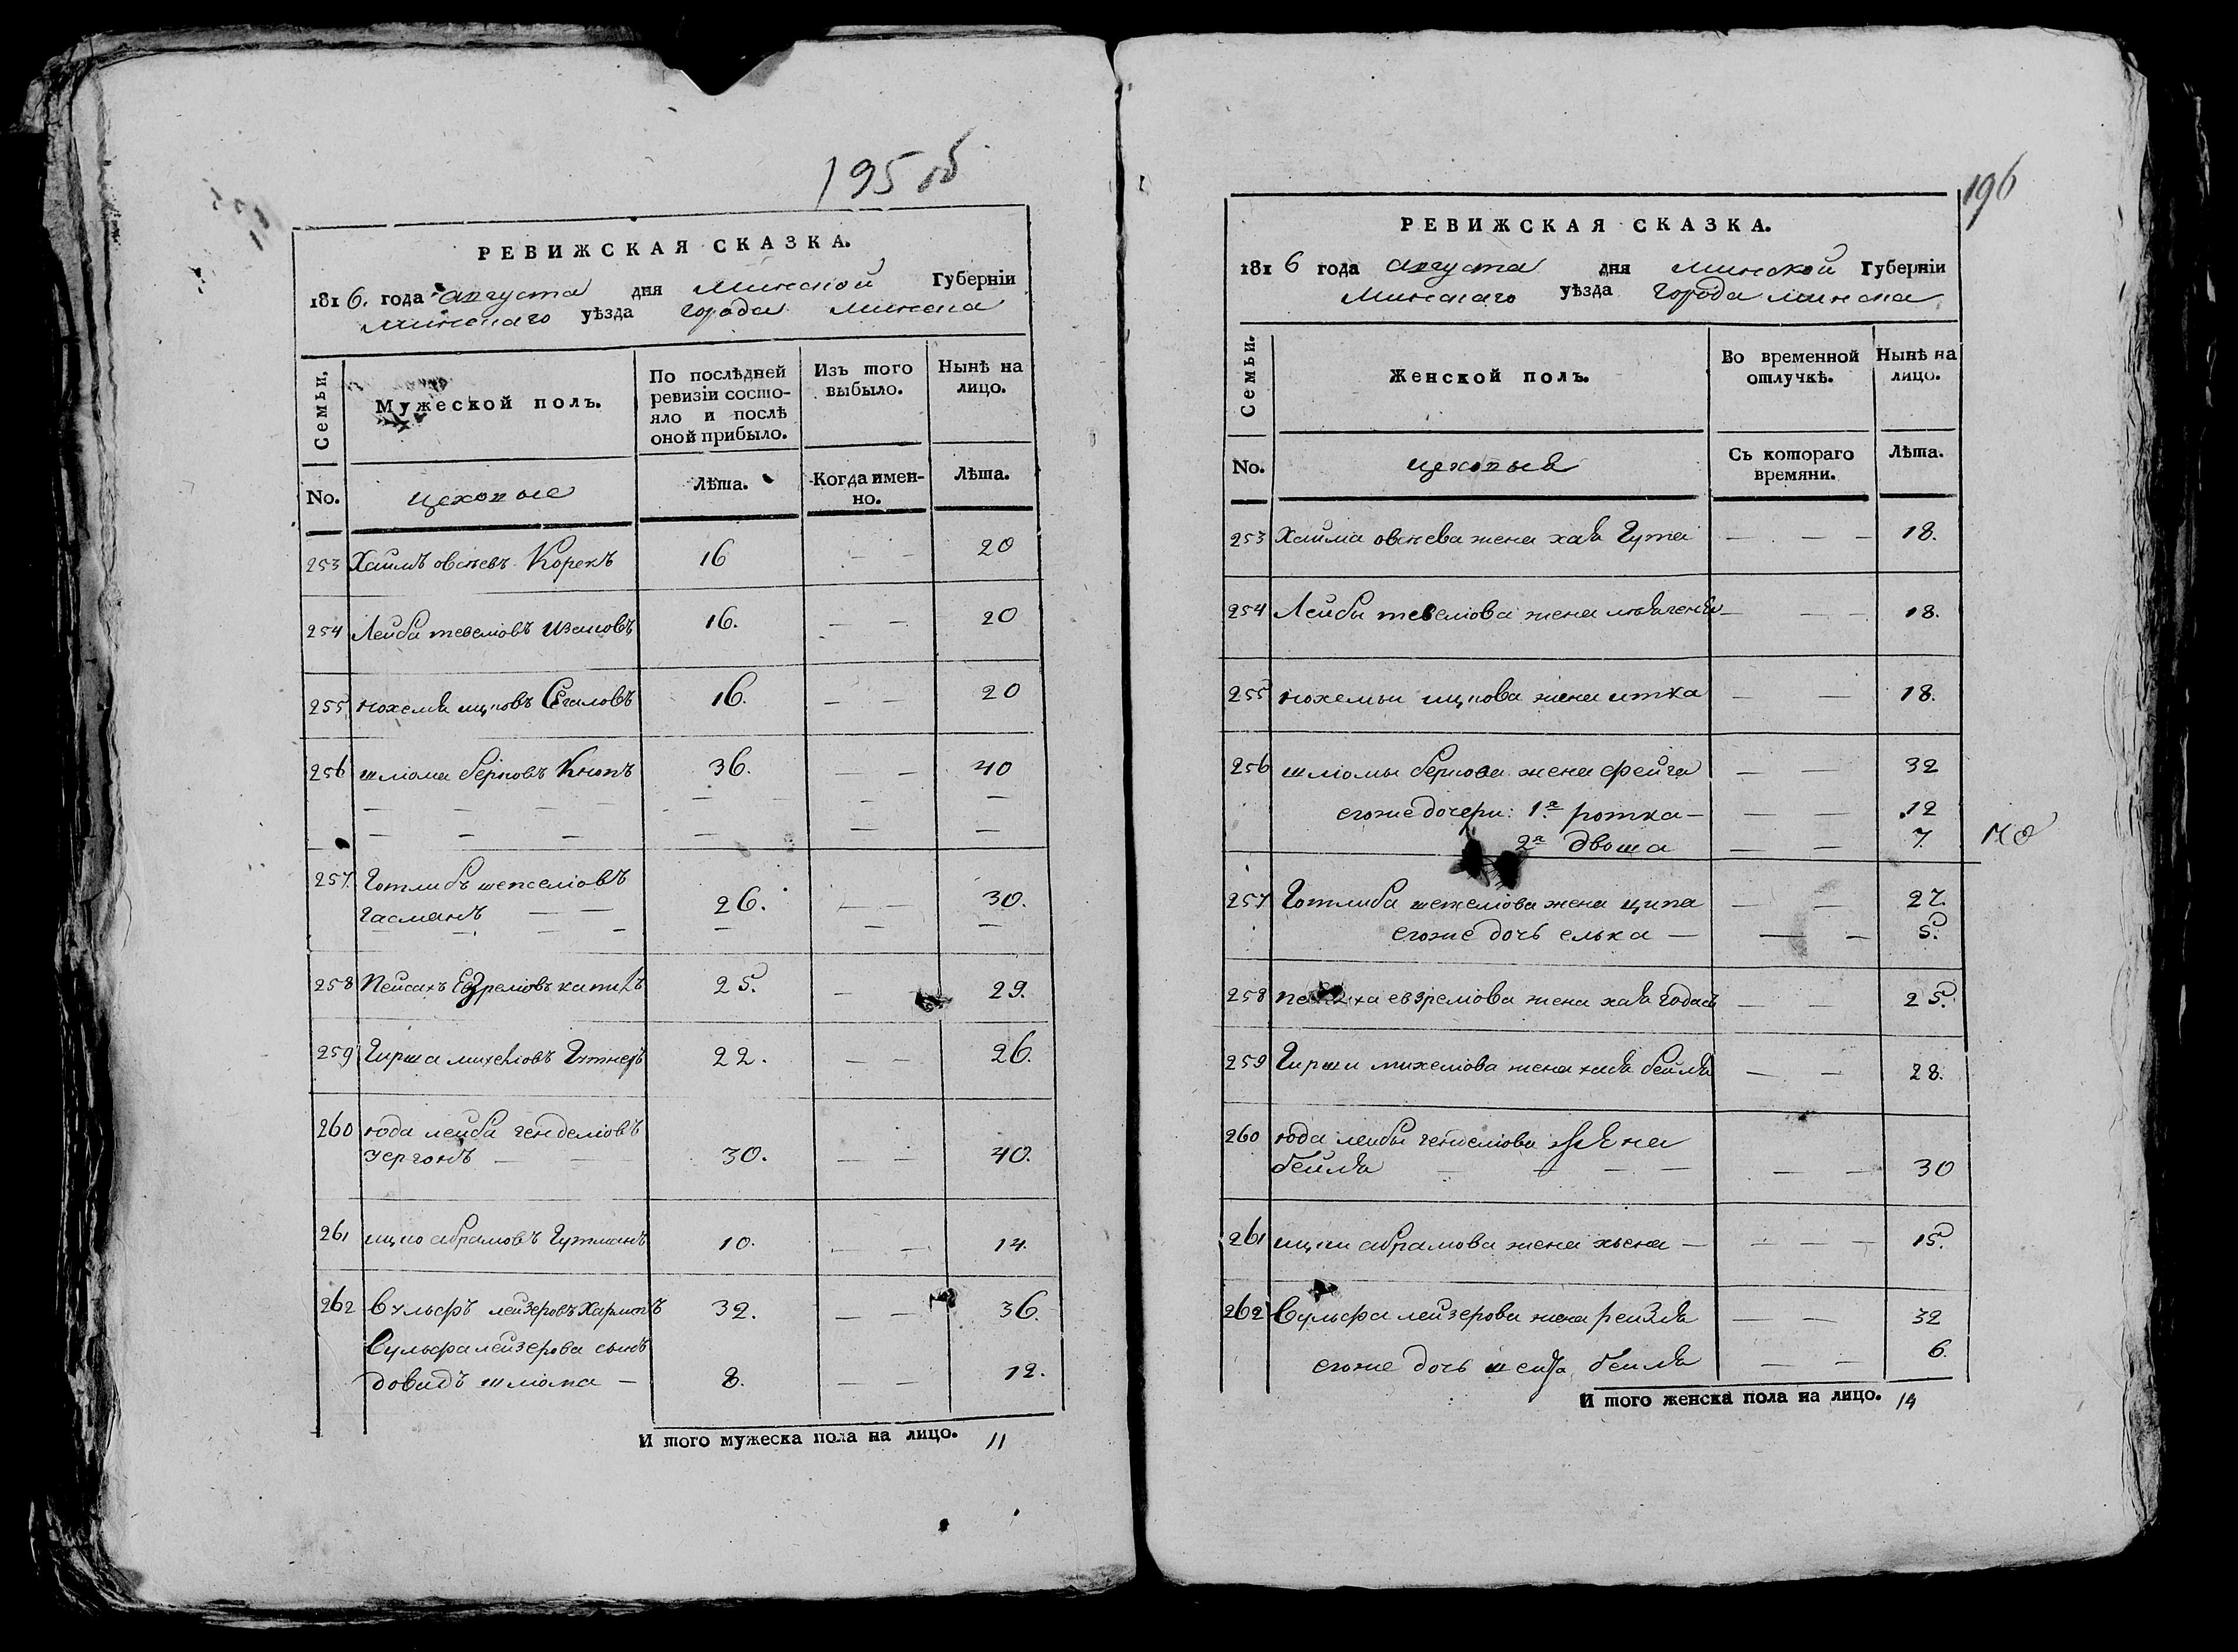 195 об
РЕВИЖСКАЯ СКАЗКА.
1816. года августа дня минской Губерніи
минскаго уѣзда города минска
Семьи.
Мужеской полъ.
По послѣдней ревизіи состо-
яло и послѣ
оной прибыло.
Изъ того
выбыло.
Нынѣ на
лицо.
No.
цеховые
Лѣта.
Когда имен-
но.
Лѣта.
253 Хаимъ овсѣевъ Корекъ 16 — — 20
254 Лейба тевеліовъ 16. — — 20
255 нохемя ицковъ Сегаловъ 16. — — 20
256 шліома берковъ Кнопъ 36. — — 40
— — — — — — —
— — — — — — —
257. Готлибъ шепселіовъ
гасманъ — — 26. — — 30.
— — — — — —
258 Пейсахъ Евзреліовъ 25. — 29.
259 Гирша михеліовъ Гутнеръ 22. — — 26.
260 юда лейба генделіовъ
зергонъ — — 30. — — 40.
261 ицко абрамовъ Гутманъ 10. — — 14.
262 Вульфъ лейзеровъ 32. — — 36.
Вульфа лейзерова сынъ
довидъ шліома — 8. — — 12.
И того мужеска пола на лицо. 11
196
РЕВИЖСКАЯ СКАЗКА.
1816 года августа дня минской Губерніи
Минскаго уѣзда города минска
Семьи.
Женской полъ.
Во временной
отлучкѣ.
Нынѣ на
лицо.
No.
цеховыя
Съ котораго
времяни.
Лѣта.
253 Хаима овсѣева жена хая Гута — — — 18.
254 Лейбы тевеліова жена — — — 18.
255 нохемьи ицкова жена итка — — 18.
256 шліомы беркова жена фейга — — 32
егоже дочери: 1я ротка — — — 12
2я Двоша — — 7
257 Готлиба шепселіова жена ципа — — 27.
егоже дочь елька — — — 5.
258 пейсаха евзреліова жена хая — — 25.
259 Гирши михеліова жена хая бейля — — 28.
260 юда лейбы генделіова жена
бейля — — — — — — 30
261 ицки абрамова жена хьена — — — — 15.
262 Вульфа лейзерова жена рейзля — — 32
егоже дочь бейля — — 6.
И того женска пола на лицо. 14